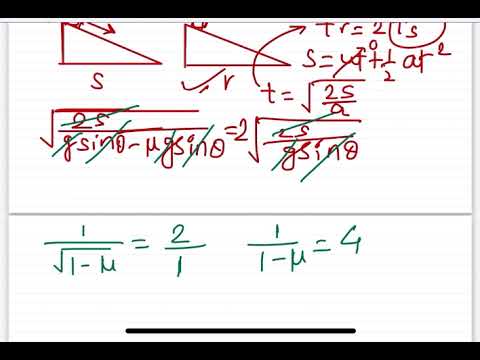 tr = 2 ts
S = ut⁰ + 1/2 at²
S
r
t = √(2S/a)
√(2S/(gsinθ - μgsinθ)) = 2√(2S/(gsinθ))
1/√(1-μ) = 2/1
1/(1-μ) = 4